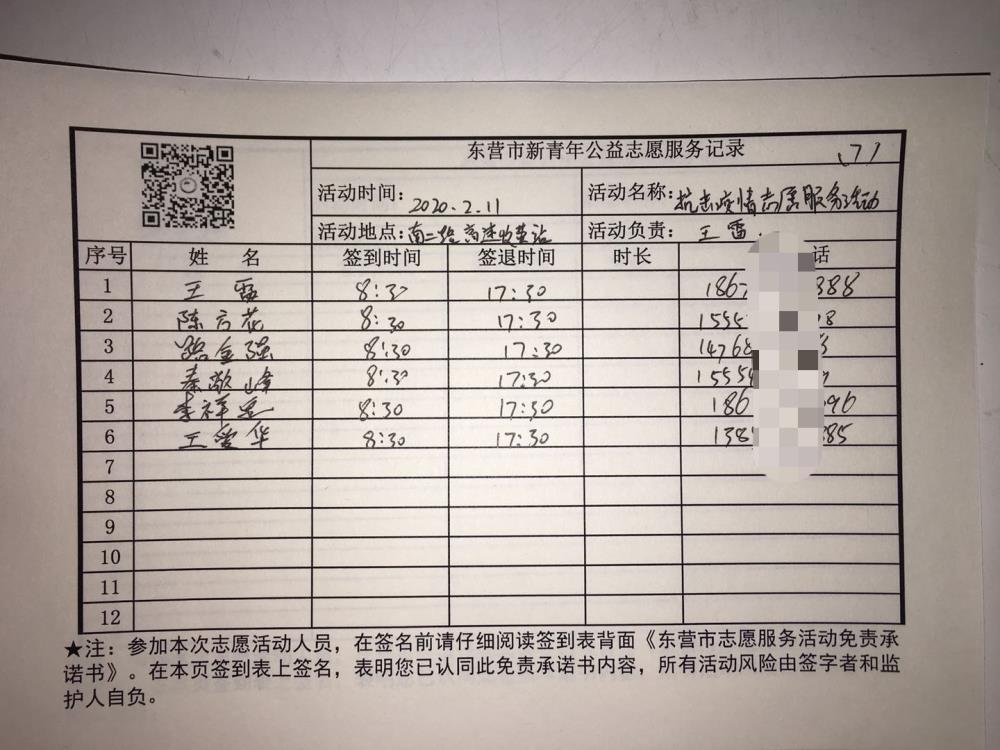 东营市新青年公益志愿服务记录
活动时间：2020.2.11 活动名称：抗击疫情志愿服务活动
活动地点：南二路高速收费站 活动负责：王雷
序号 姓 名 签到时间 签退时间 时长 话
1 王雷 8:30 17:30 1867 388
2 陈方花 8:30 17:30 1555 8
3 强 8:30 17:30 14768
4 秦敬峰 8:30 17:30 15555
5 李祥 8:30 17:30 186 96
6 王爱华 8:30 17:30 138 385
7
8
9
10
11
12
★注：参加本次志愿活动人员，在签名前请仔细阅读签到表背面《东营市志愿服务活动免责承
诺书》。在本页签到表上签名，表明您已认同此免责承诺书内容，所有活动风险由签字者和监
护人自负。